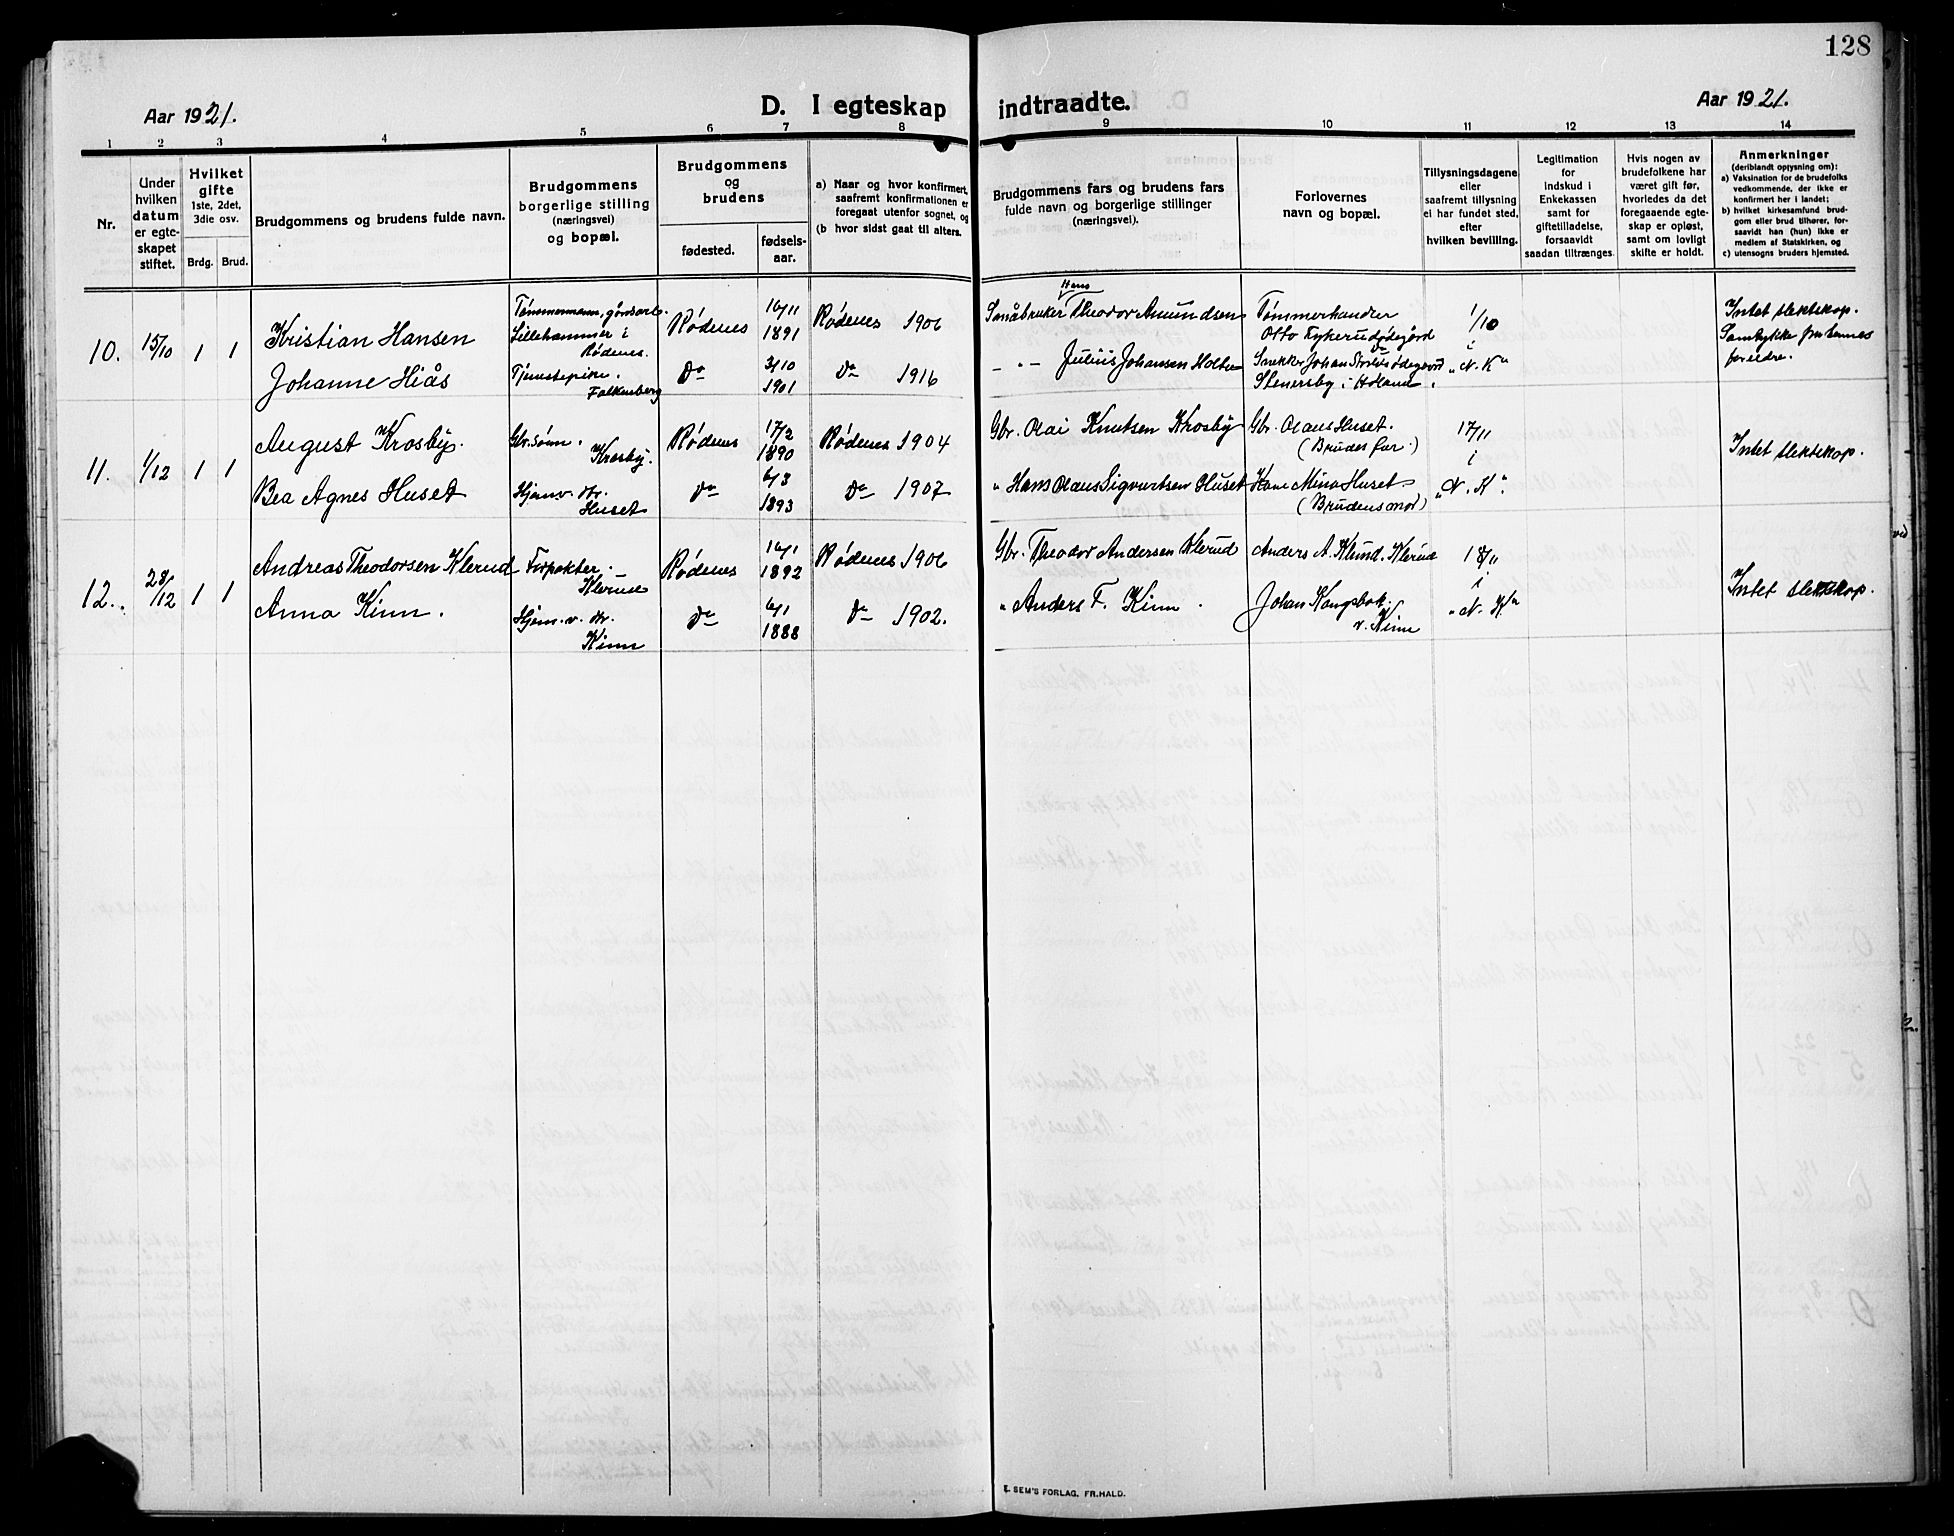 128
Aar 1921.
D. I egteskap indtraadte.
Aar 1921.
1 2 3 4 5 6 7 8 9 10 11 12 13 14
Nr.
Under
hvilken
datum
er egte-
skapet
stiftet.
Hvilket
gifte
1ste, 2det,
3die osv.
Brdg. Brud.
Brudgommens og brudens fulde navn.
Brudgommens
borgerlige stilling
(næringsvei)
og bopæl.
Brudgommens
og
brudens
fødested.
fødsels-
aar.
a) Naar og hvor konfirmert,
saafremt konfirmationen er
foregaat utenfor sognet, og
(b hvor sidst gaat til alters.
Brudgommens fars og brudens fars
fulde navn og borgerlige stillinger
(næringsvei).
Forlovernes
navn og bopæl.
Tillysningsdagene
eller
saafremt tillysning
ei har fundet sted,
efter
hvilken bevilling.
Legitimation
for
Indskud i
Enkekassen
samt for
giftetilladelse,
forsaavidt
saadan tiltrænges
Hvis nogen av
brudefolkene har
været gift før,
hvorledes da det
foregaaende egte-
skap er opløst,
samt om lovligt
skifte er holdt.
Anmerkninger
(deriblandt oplysning om):
a) Vaksination for de brudefolks
vedkommende, der ikke er
konfirmert her i landet;
b) hvilket kirkesamfund brud-
gom eller brud tilhører, for-
saavidt han (hun) ikke er
medlem af Statskirken, og
c) utensogns bruders hjemsted.
10. 15/10 1 1
Kristian Hansen
Tømmermann, gårdsarb.
Lillehammer i
Rødenes.
Rødenes 16/11
1891
Rødenes 1906
Hans
Småbruker Theodor Amundsen
Tømmerhandler
Otto Tykerudødegård
1/10
Intet slektskap.
Samtykke fra hennes
foreldre.
Johanne Hiås
Tjenestepike.
Falkenberg
Do 31/10
1901
Do 1916
— " — Julius Johansen Holter
Snekker Johan
Stenersby i Høland.
i
"N. K"
11. 1/12 1 1
August Krosby.
Gbr.sønn.
Krosby.
Rødenes 17/2
1890
Rødenes 1904
Gbr. Olai Knutsen Krosby
Gbr. Olaus Huset.
(Brudes far.)
17/11
i
Intet slektskap.
Bea Agnes Huset
Hjemv. dtr.
Huset
Do 6/3
1893
Do 1907
" Hans Olaus Sigvartsen Huset
Kone Mina Huset
(Brudens mor)
"N. K".
12. 28/12 1 1
Andreas Theodorsen Klerud
Forpakter.
Klerud
Rødenes 16/1
1892
Rødenes 1906
Gbr. Theodor Andersen Klerud
Anders A. Klund. Klerud
18/11
i
Intet slektskap.
Anna Kinn.
Hjem.v. dtr.
Kinn
Do 6/1
1888
Do 1902.
" Anders F. Kinn.
Johan Kongsbak.
v. Kinn
"N. K"
E. SEM'S FORLAG, FR.HALD.